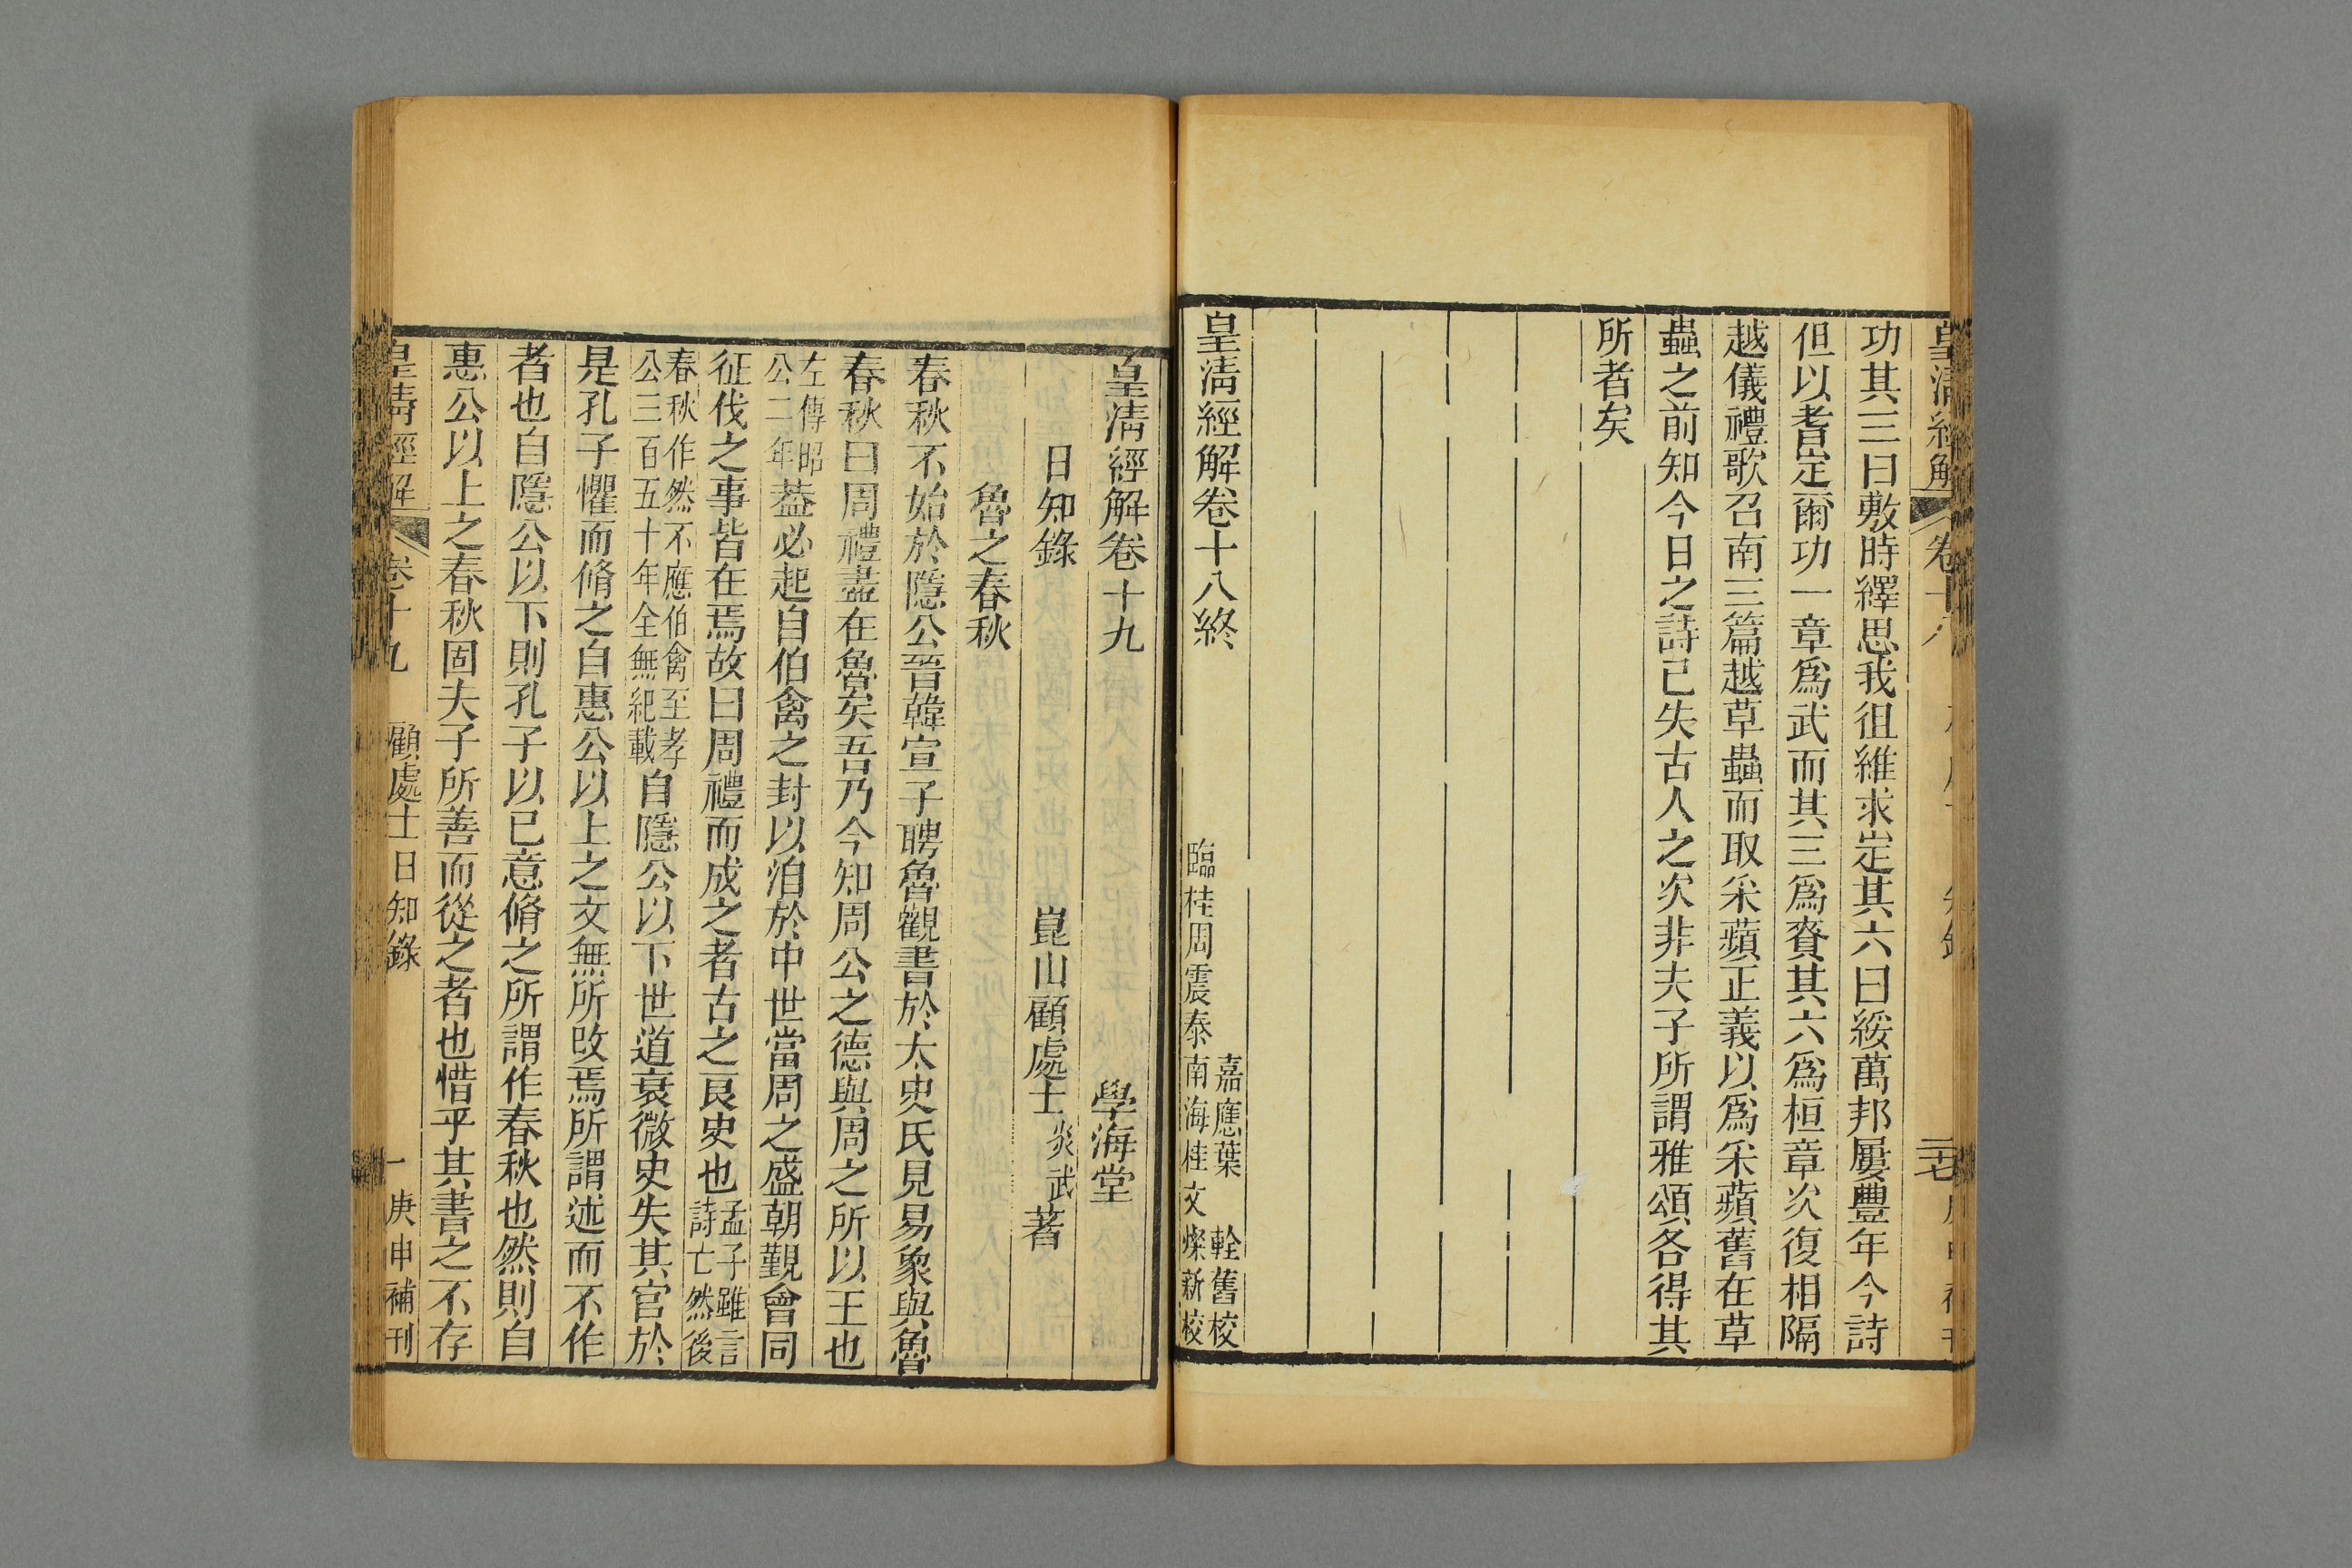 皇清經解 卷十八
功其三曰敷時繹思我徂維求定其六曰綏萬邦屢豐年今詩
但以耆定爾功一章爲武而其三爲賚其六爲桓章次復相隔
越儀禮歌召南三篇越草蟲而取采蘋正義以爲采蘋舊在草
蟲之前知今日之詩已失古人之次非夫子所謂雅頌各得其
所者矣
皇清經解卷十八終
嘉應葉 輇舊校
臨桂周震泰南海桂文燦新校
皇清經解卷十九 學海堂
日知錄 崑山顧處士炎武著
魯之春秋
春秋不始於隱公晉韓宣子聘魯觀書於太史氏見易象與魯
春秋曰周禮盡在魯矣吾乃今知周公之德與周之所以王也
左傳昭
公二年葢必起自伯禽之封以洎於中世當周之盛朝覲會同
征伐之事皆在焉故曰周禮而成之者古之良史也孟子雖言
詩亡然後
春秋作然不應伯禽至孝
公三百五十年全無紀載自隱公以下世道衰微史失其官於
是孔子懼而脩之自惠公以上之文無所改焉所謂述而不作
者也自隱公以下則孔子以己意脩之所謂作春秋也然則自
惠公以上之春秋固夫子所善而從之者也惜乎其書之不存
皇清經解 卷十九 顧處士日知錄 一 庚申補刊